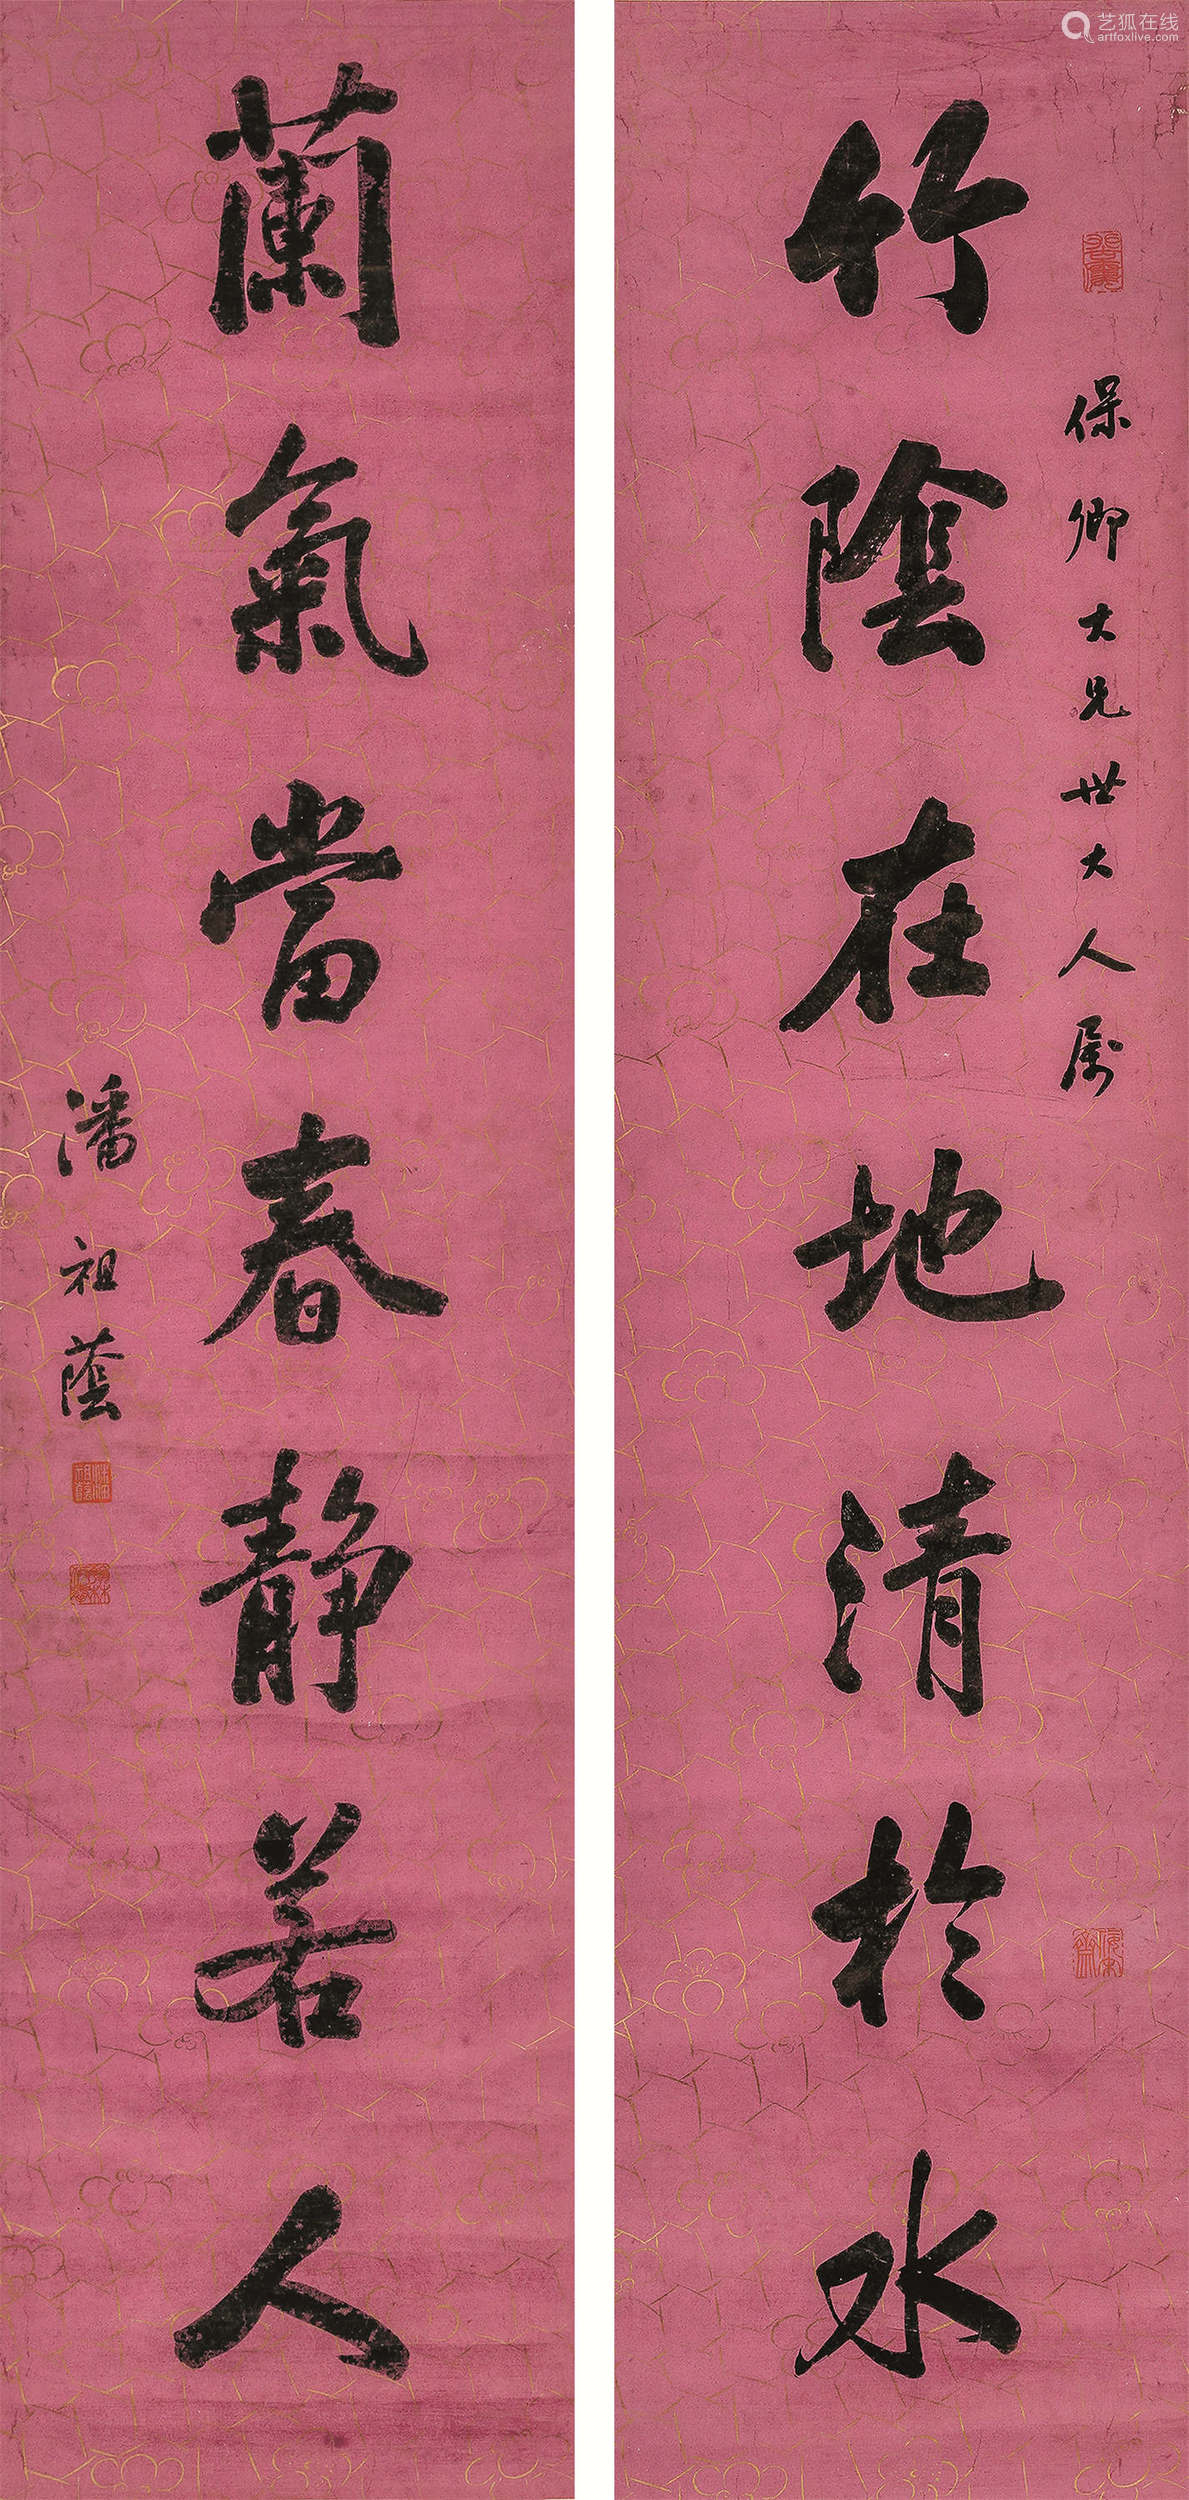 艺狐在线
artfoxlive.com
保卿大兄世大人属
竹陰在地清於水
蘭氣當春静若人
潘祖蔭